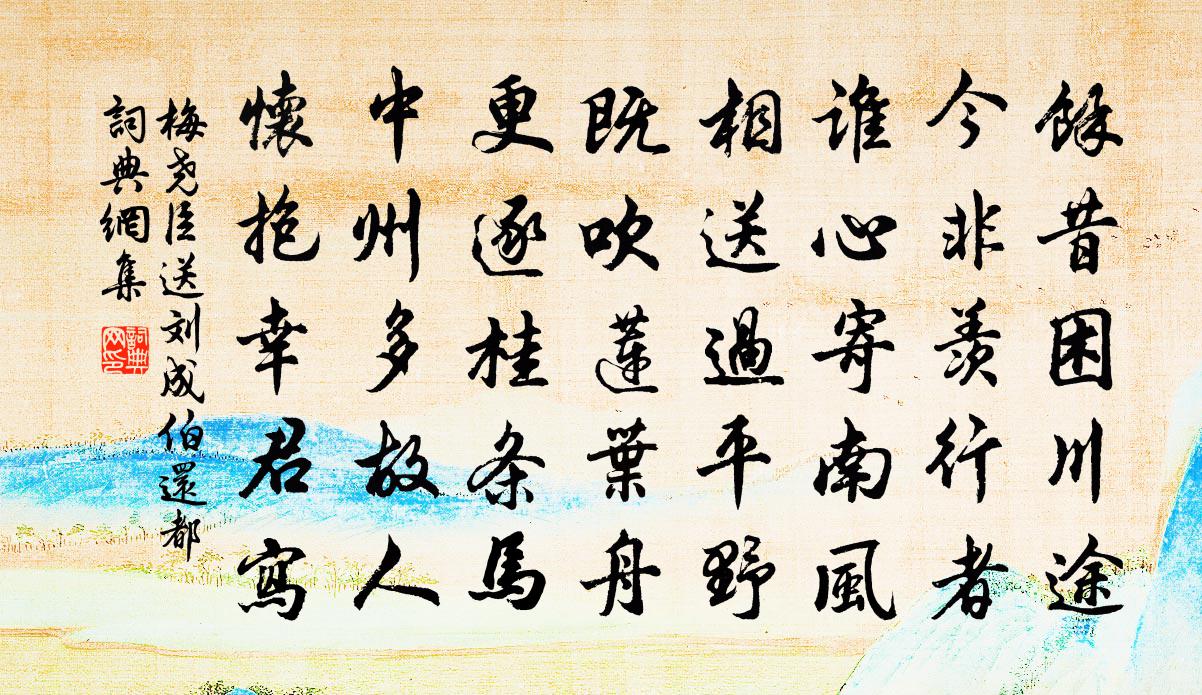 餘昔困川途
今非羨行者
誰心寄南風
相送過平野
既吹蓮葉舟
更逐桂条馬
中州多故人
懷抱幸君寫
梅尧臣送刘成伯還都
詞典網集
詞典网印